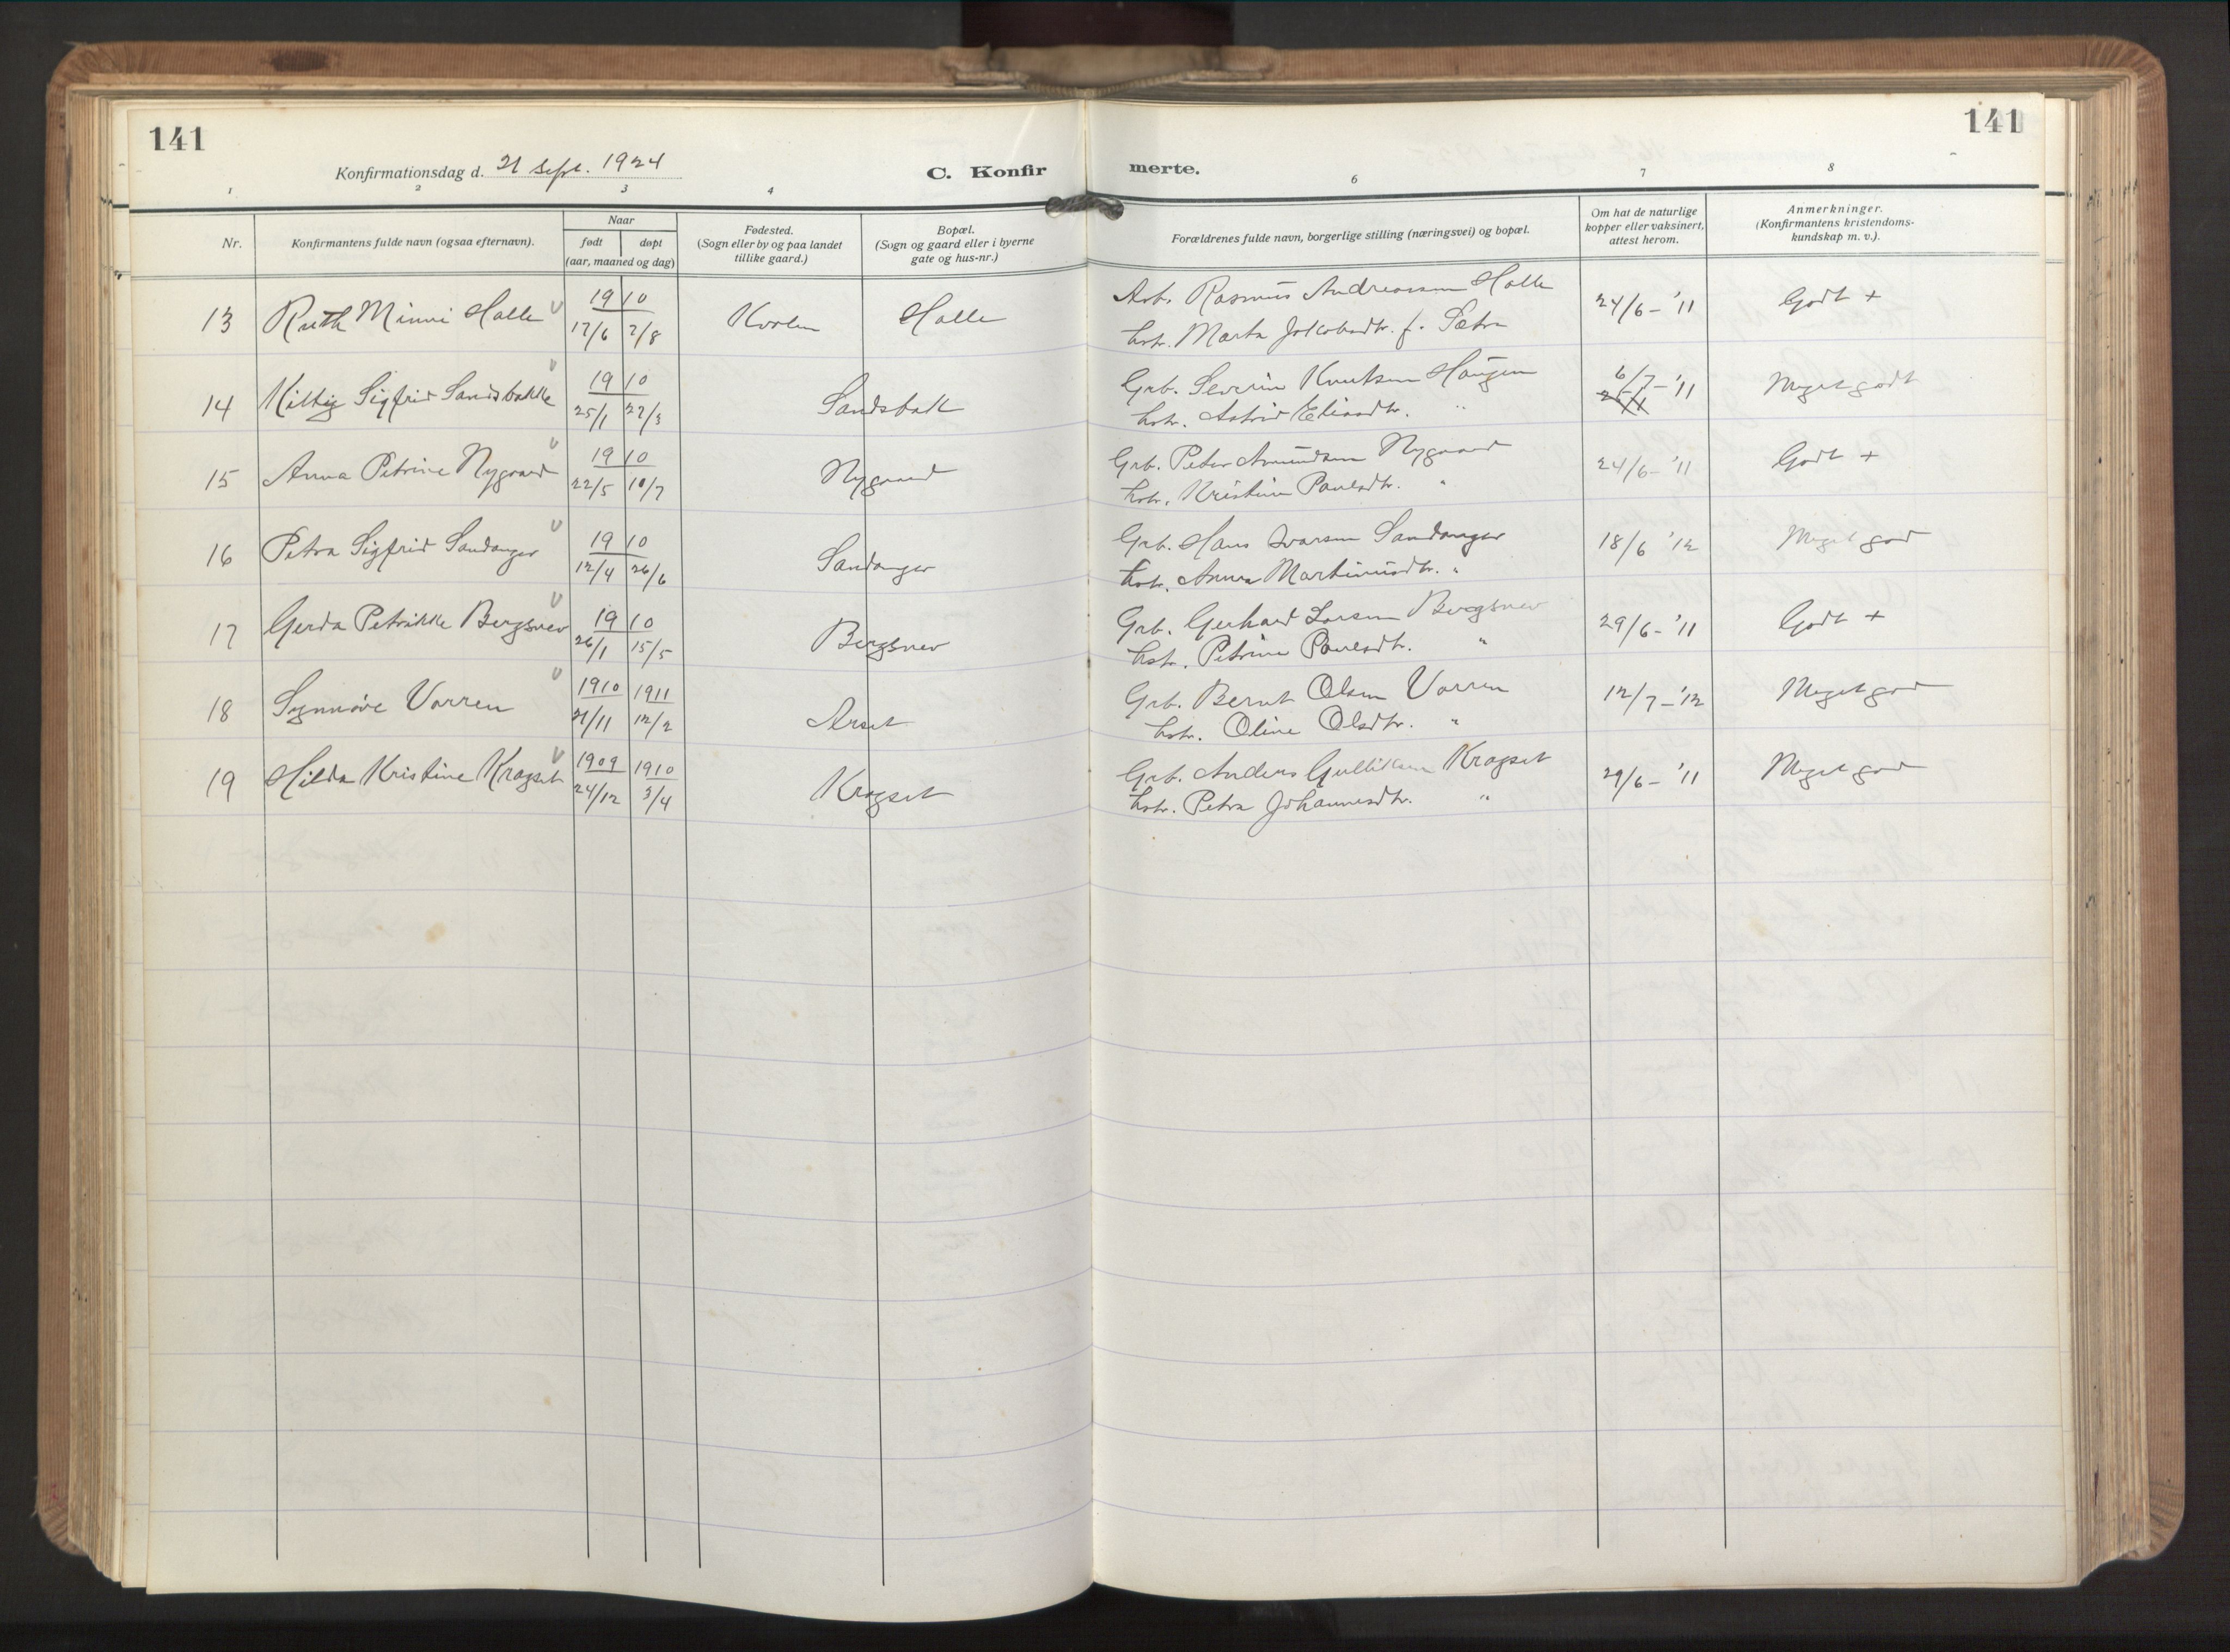 141
141
Konfirmationsdag d. 21 sept. 1924
C. Konfir merte.
1 2 3 4 6 7 8
Nr.
Konfirmantens fulde navn (ogsaa efternavn).
Naar
født døpt
(aar, maaned og dag)
Fødested.
(Sogn eller by og paa landet
tillike gaard.)
Bopæl.
(Sogn og gaard eller i byerne
gate og hus-nr.)
Forældrenes fulde navn, borgerlige stilling (næringsvei) og bopæl.
Om hat de naturlige
kopper eller vaksinert,
attest herom.
Anmerkninger.
(Konfirmantens kristendoms-
kundskap m. v.).
13 Ruth Minni Halle 1910 17/6 7/8 Kvolen Halle
Arb. Rasmus Andreassen Halle
hstr. Marta Jakobsdtr. f. Sætre
24/6-'11 Godt +
14 Kitty Sigfrid Sandsbakk 1910 25/1 27/3 Sandsbakk
Grb. Severin Knutsen Haugen
hstr. Astrid Eliasdtr. "
6/7-'11 Meget godt
15 Anna Petrine Nygaard 1910 22/5 10/7 Nygaard
Grb. Peter Amundsen Nygaard
hstr. Kristine Paulsdtr. "
24/6-'11 Godt +
16 Petra Sigfrid Sandanger 1910 12/4 26/6 Sandanger
Grb. Hans Ivarsen Sandanger
hstr. Anna Martinusdtr. "
18/6 '12 Meget god
17 Gerda Petrikke Bergsnev 1910 26/1 15/5 Bergsnev
Grb. Gerhard Larsen Bergsnev
hstr. Petrine Paulsdtr. "
29/6-'11 Godt +
18 Synnøve Vorren 1910 21/11 1911 12/2 Arset
Grb. Bernt Olsen Vorren
hstr. Oline Olsdtr. "
12/7-'12 Meget god
19 Hilda Kristine Kragset 1909 24/12 1910 3/4 Kragset
Grb. Anders Gulliksen Kragset
hstr. Petra Johannesdtr. "
29/6-'11 Meget god